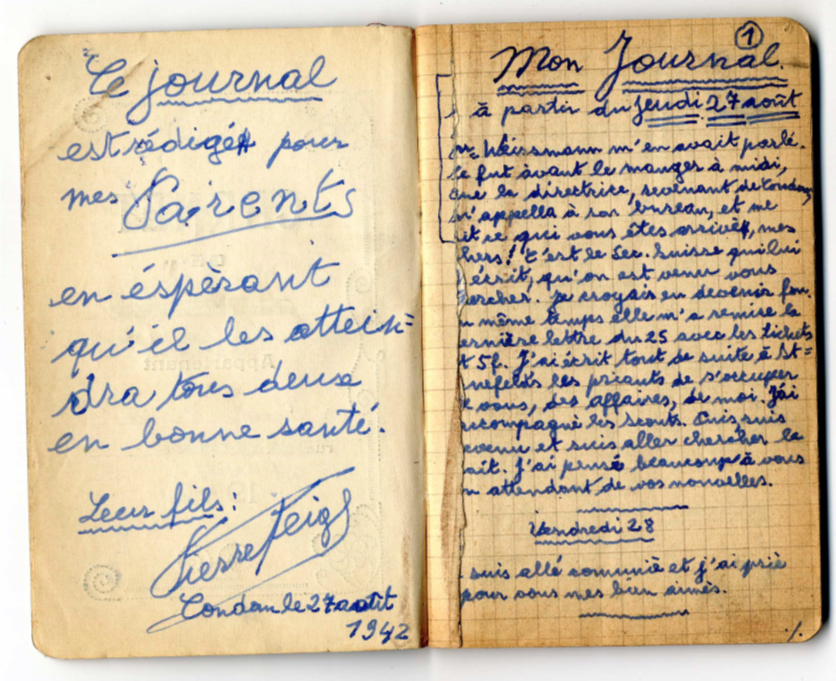 Ce journal
est rédigé pour
mes Pairents
en éspèrant
qu'il les attein=
dra tous deux
en bonne santé.
Leur fils:
Pierre Feigl
Condom le 27 août
1942
1
Mon Journal.
à partir du Jeudi 27 août
Weissmann m'en avait parlé.
Ce fut avant le manger à midi,
que la directrice, revenant de Condom,
m'appella à son bureau, et me
dit ce qui vous êtes arrivé, mes
chers! C'est le Sec. Suisse qui lui
écrit, qu'on est venu vous
chercher. Je croyais en devenir fou.
même temps elle m'a remise la
ernière lettre du 25 avec les tickets
et 5f. J'ai écrit tout de suite à St=
nefelds les priants de s'occuper
vous, des affaires, de moi. J'ai
accompagné les scouts. Puis suis
revenu et suis aller chercher le
lait. J'ai pensé beaucoup à vous
attendant de vos nouvelles.
Vendredi 28
suis allé comunié et j'ai prié
pour vous mes bien aimés.
./.